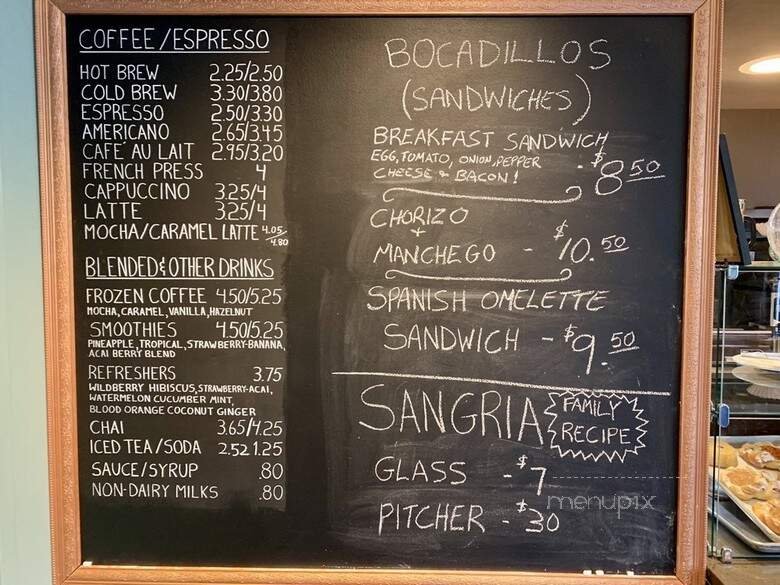 COFFEE/ESPRESSO
HOT BREW 2.25/2.50
COLD BREW 3.30/3.80
ESPRESSO 2.50/3.30
AMERICANO 2.65/3.45
CAFÉ AU LAIT 2.95/3.20
FRENCH PRESS 4
CAPPUCCINO 3.25/4
LATTE 3.25/4
MOCHA/CARAMEL LATTE 4.05/4.80
BLENDED & OTHER DRINKS
FROZEN COFFEE 4.50/5.25
MOCHA, CARAMEL, VANILLA, HAZELNUT
SMOOTHIES 4.50/5.25
PINEAPPLE, TROPICAL, STRAWBERRY-BANANA,
ACAI BERRY BLEND
REFRESHERS 3.75
WILDBERRY HIBISCUS, STRAWBERRY-ACAI,
WATERMELON CUCUMBER MINT,
BLOOD ORANGE COCONUT GINGER
CHAI 3.65/4.25
ICED TEA/SODA 2.52 1.25
SAUCE/SYRUP .80
NON-DAIRY MILKS .80
BOCADILLOS
(SANDWICHES)
BREAKFAST SANDWICH
EGG, TOMATO, ONION, PEPPER - $8.50
CHEESE & BACON!
CHORIZO
+
MANCHEGO - $10.50
SPANISH OMELETTE
SANDWICH - $9.50
SANGRIA
FAMILY
RECIPE
GLASS - $7
PITCHER - $30
menupix